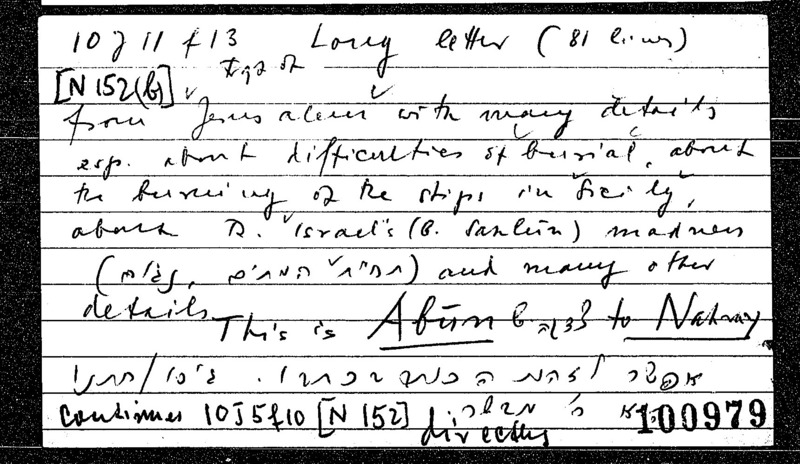 10 J 11 f 13 Long letter (81 lines)
[N 152(b)]
from Jerusalem with many details
esp. about difficulties of burial, about
the burning of the ships in Sicily,
about R. Israel's (b. Sahlūn) madness
(תחית המתים) and many other
details. This is Abūn b. צדקה to Nahray
אפשר לזהות הכותב בכתבו.
continues 10 J 5 f 10 [N 152] directly
100979